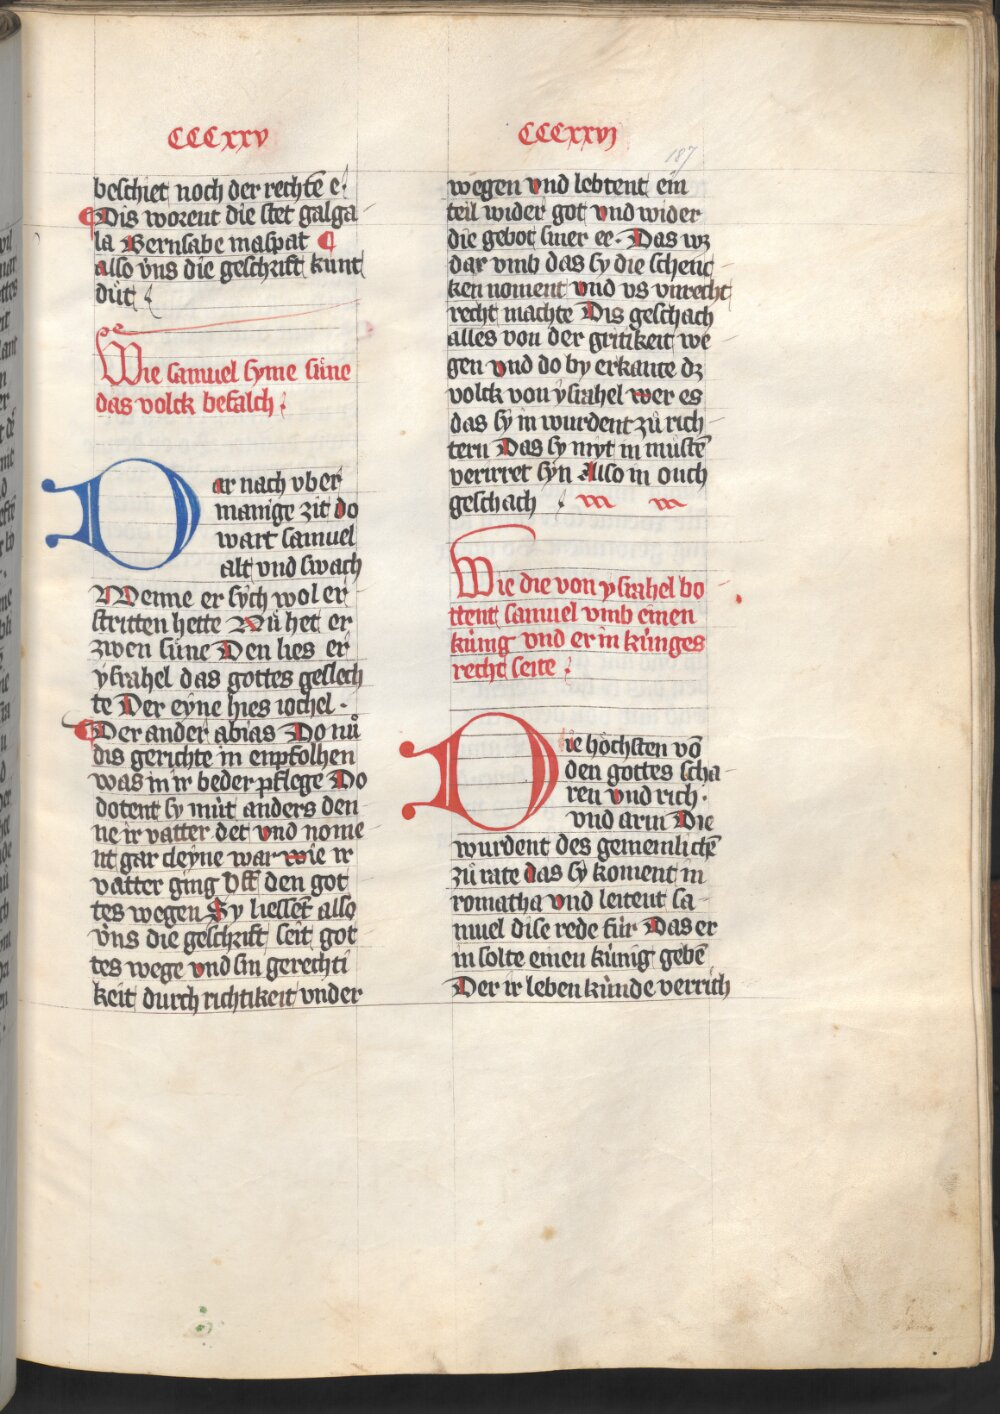 CCCxxv
beschiet noch der rechtē e.
Dis worent die stet galga
la Bernsabe maspat
also vns die geschrift kunt
dűt
Wie samuel syme sűne
das volck befalch
Dar nach vber
manige zit do
wart samuel
alt vnd swach
Wenne er sych wol er
stritten hette Nů het er
zwen sűne Den lies er
ysrahel das gottes geslech
te Der eyne hies iohel.
Der ander abias Do nů
dis gerichte in enpfolhen
was in ir beder pflege Do
dotent sy můt anders den
ne ir vatter det vnd nome
nt gar cleyne war wie ir
vatter ging vff den got
tes wegen Sy liessēt also
vns die geschrift seit got
tes wege vnd sin gerechti
keit durch richtikeit vnder
CCCxxvj
187
wegen vnd lebtent ein
teil wider got vnd wider
die gebot siner ee. Das wz
dar vmb das sy die schenc
ken noment vnd vs vnrecht
recht machte Dis geschach
alles von der gritikeit we
gen vnd do by erkante dz
volck von ysrahel wer es
das sy in wurdent zů rich
tern Das sy myt in műstē
verirret syn Also in ouch
geschach
Wie die von ysrahel bo
ttent samuel vmb einen
kűnig vnd er in kűnges
recht seite
Die höchsten vō
den gottes scha
ren vnd rich.
vnd arm Die
wurdent des gemeinlichē
zů rate das sy koment in
romatha vnd leitent sa
muel dise rede fűr Das er
in solte einen kűnig gebē
Der ir leben kűnde verrich